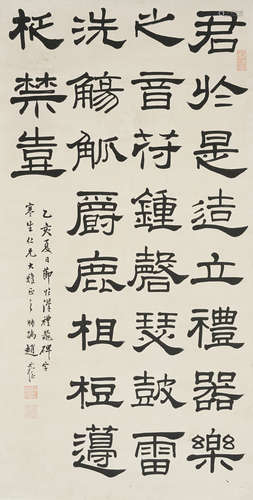 君於是造立禮器樂
之音苻鍾磬瑟鼓雷
洗觴觚爵鹿柤梪籩
柉禁壺
乙亥夏日節臨漢禮器碑字
寒生仁兄大雅正之 趙